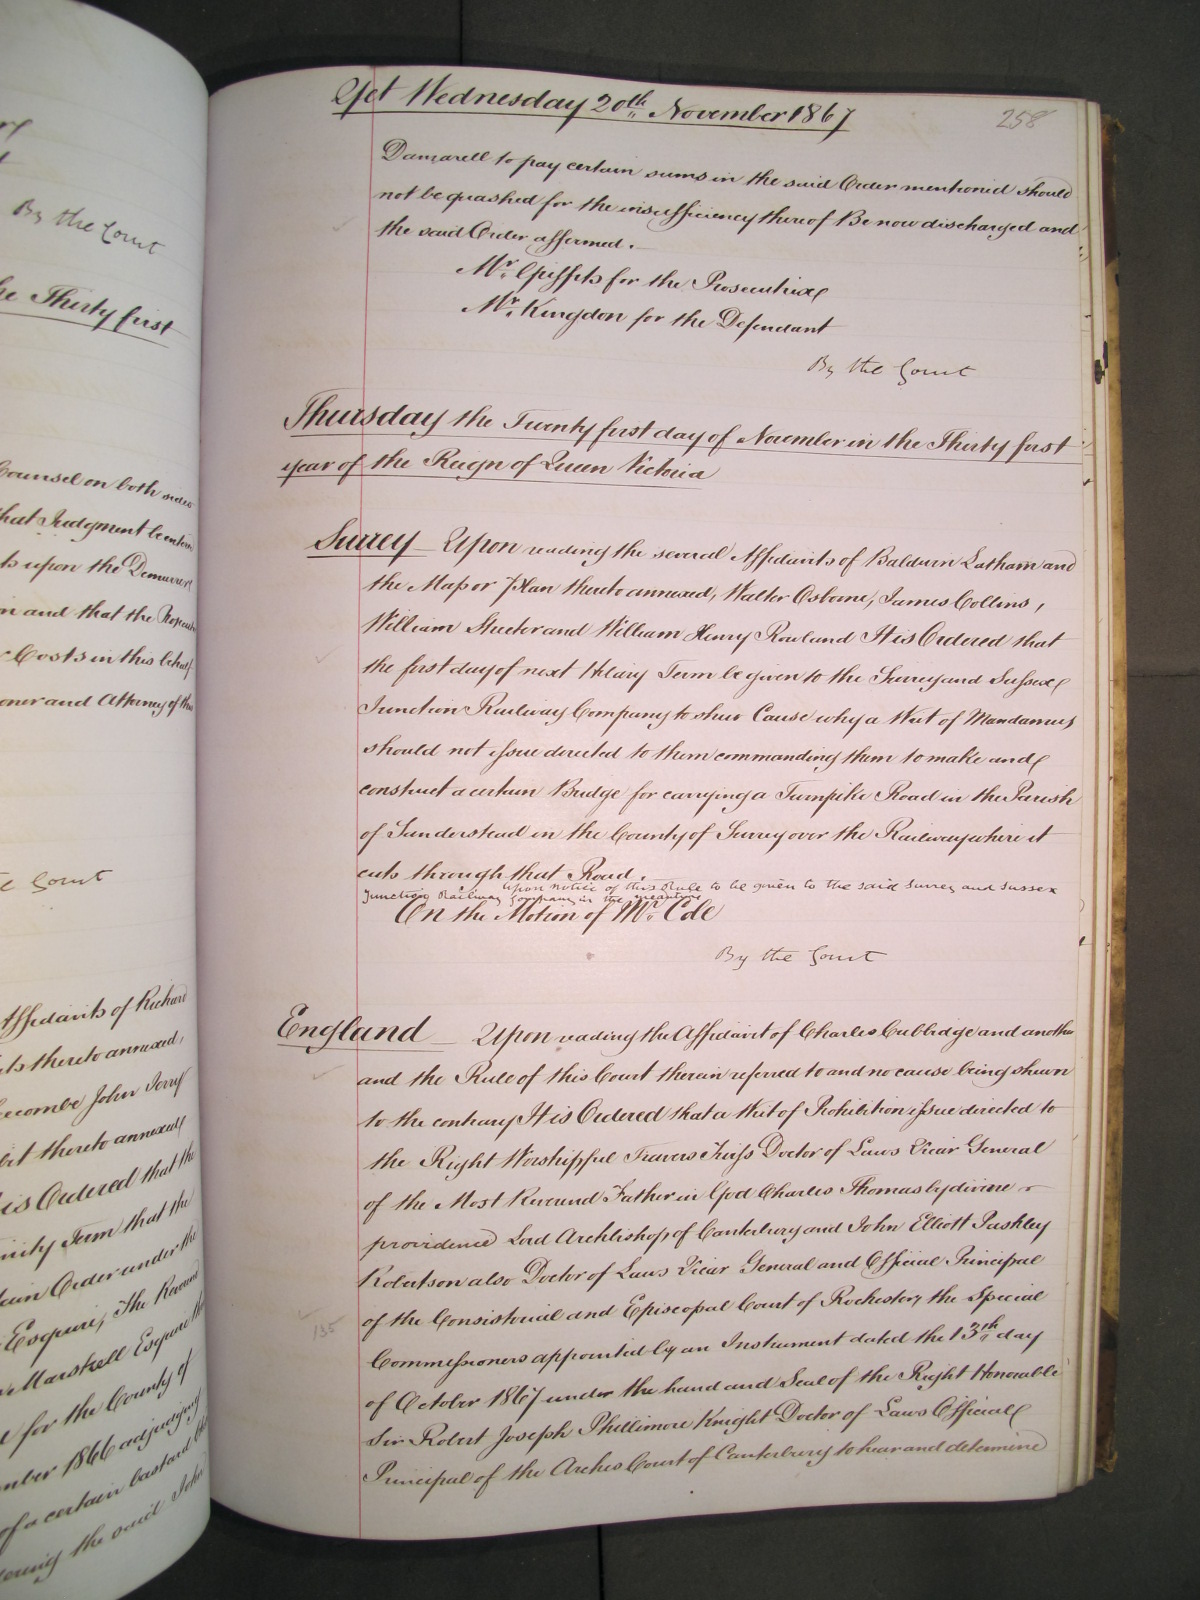 By the Court
he Thirty first
Counsel on both sides
that Judgment be enter
ts upon the Demurrer
n and that the
Costs in this behalf
oner and Attorney of the
e Court
Affidavits of Richard
ts thereto annexed,
ecombe John Terry
bit thereto annexed
is Ordered that the
nity Term that the
tain Order under the
Esquire, The Reverend
Marshall Esquire the
e for the County of
mber 1866 adjudging
of a certain bastard
the said John
Yet Wednesday 20th November 1867
258
Damarell to pay certain sums in the said Order mentioned should
not be quashed for the insufficiency thereof Be now discharged and
the said Order affirmed.
Mr. Griffits for the Prosecutrix
Mr. Kingdon for the Defendant
By the Court
Thursday the Twenty first day of November in the Thirty first
year of the Reign of Queen Victoria
Surrey Upon reading the several Affidavits of Baldwin Latham and
the Map or Plan thereto annexed, Walter Osborne, James Collins,
William Streeter and William Henry Rowland It is Ordered that
the first day of next Hilary Term be given to the Surrey and Sussex
Junction Railway Company to shew Cause why a Writ of Mandamus
should not issue directed to them commanding them to make and
construct a certain Bridge for carrying a Turnpike Road in the Parish
of Sanderstead in the County of Surrey over the Railway where it
cuts through that Road.
Upon notice of this Rule to be given to the said Surrey and Sussex
Junction Railway Company in the meantime
On the Motion of Mr. Cole
By the Court
England Upon reading the Affidavit of Charles Cubbidge and another
and the Rule of this Court therein referred to and no cause being shewn
to the contrary It is Ordered that a Writ of Prohibition issue directed to
the Right Worshipful Travers Twiss Doctor of Laws Vicar General
of the Most Reverend Father in God Charles Thomas by divine
providence Lord Archbishop of Canterbury and John Elliott Pashley
Robertson also Doctor of Laws Vicar General and Official Principal
of the Consistorial and Episcopal Court of Rochester, the Special
135
Commissioners appointed by an Instrument dated the 13th day
of October 1867 under the hand and Seal of the Right Honorable
Sir Robert Joseph Phillimore Knight Doctor of Laws Official
Principal of the Arches Court of Canterbury to hear and determine